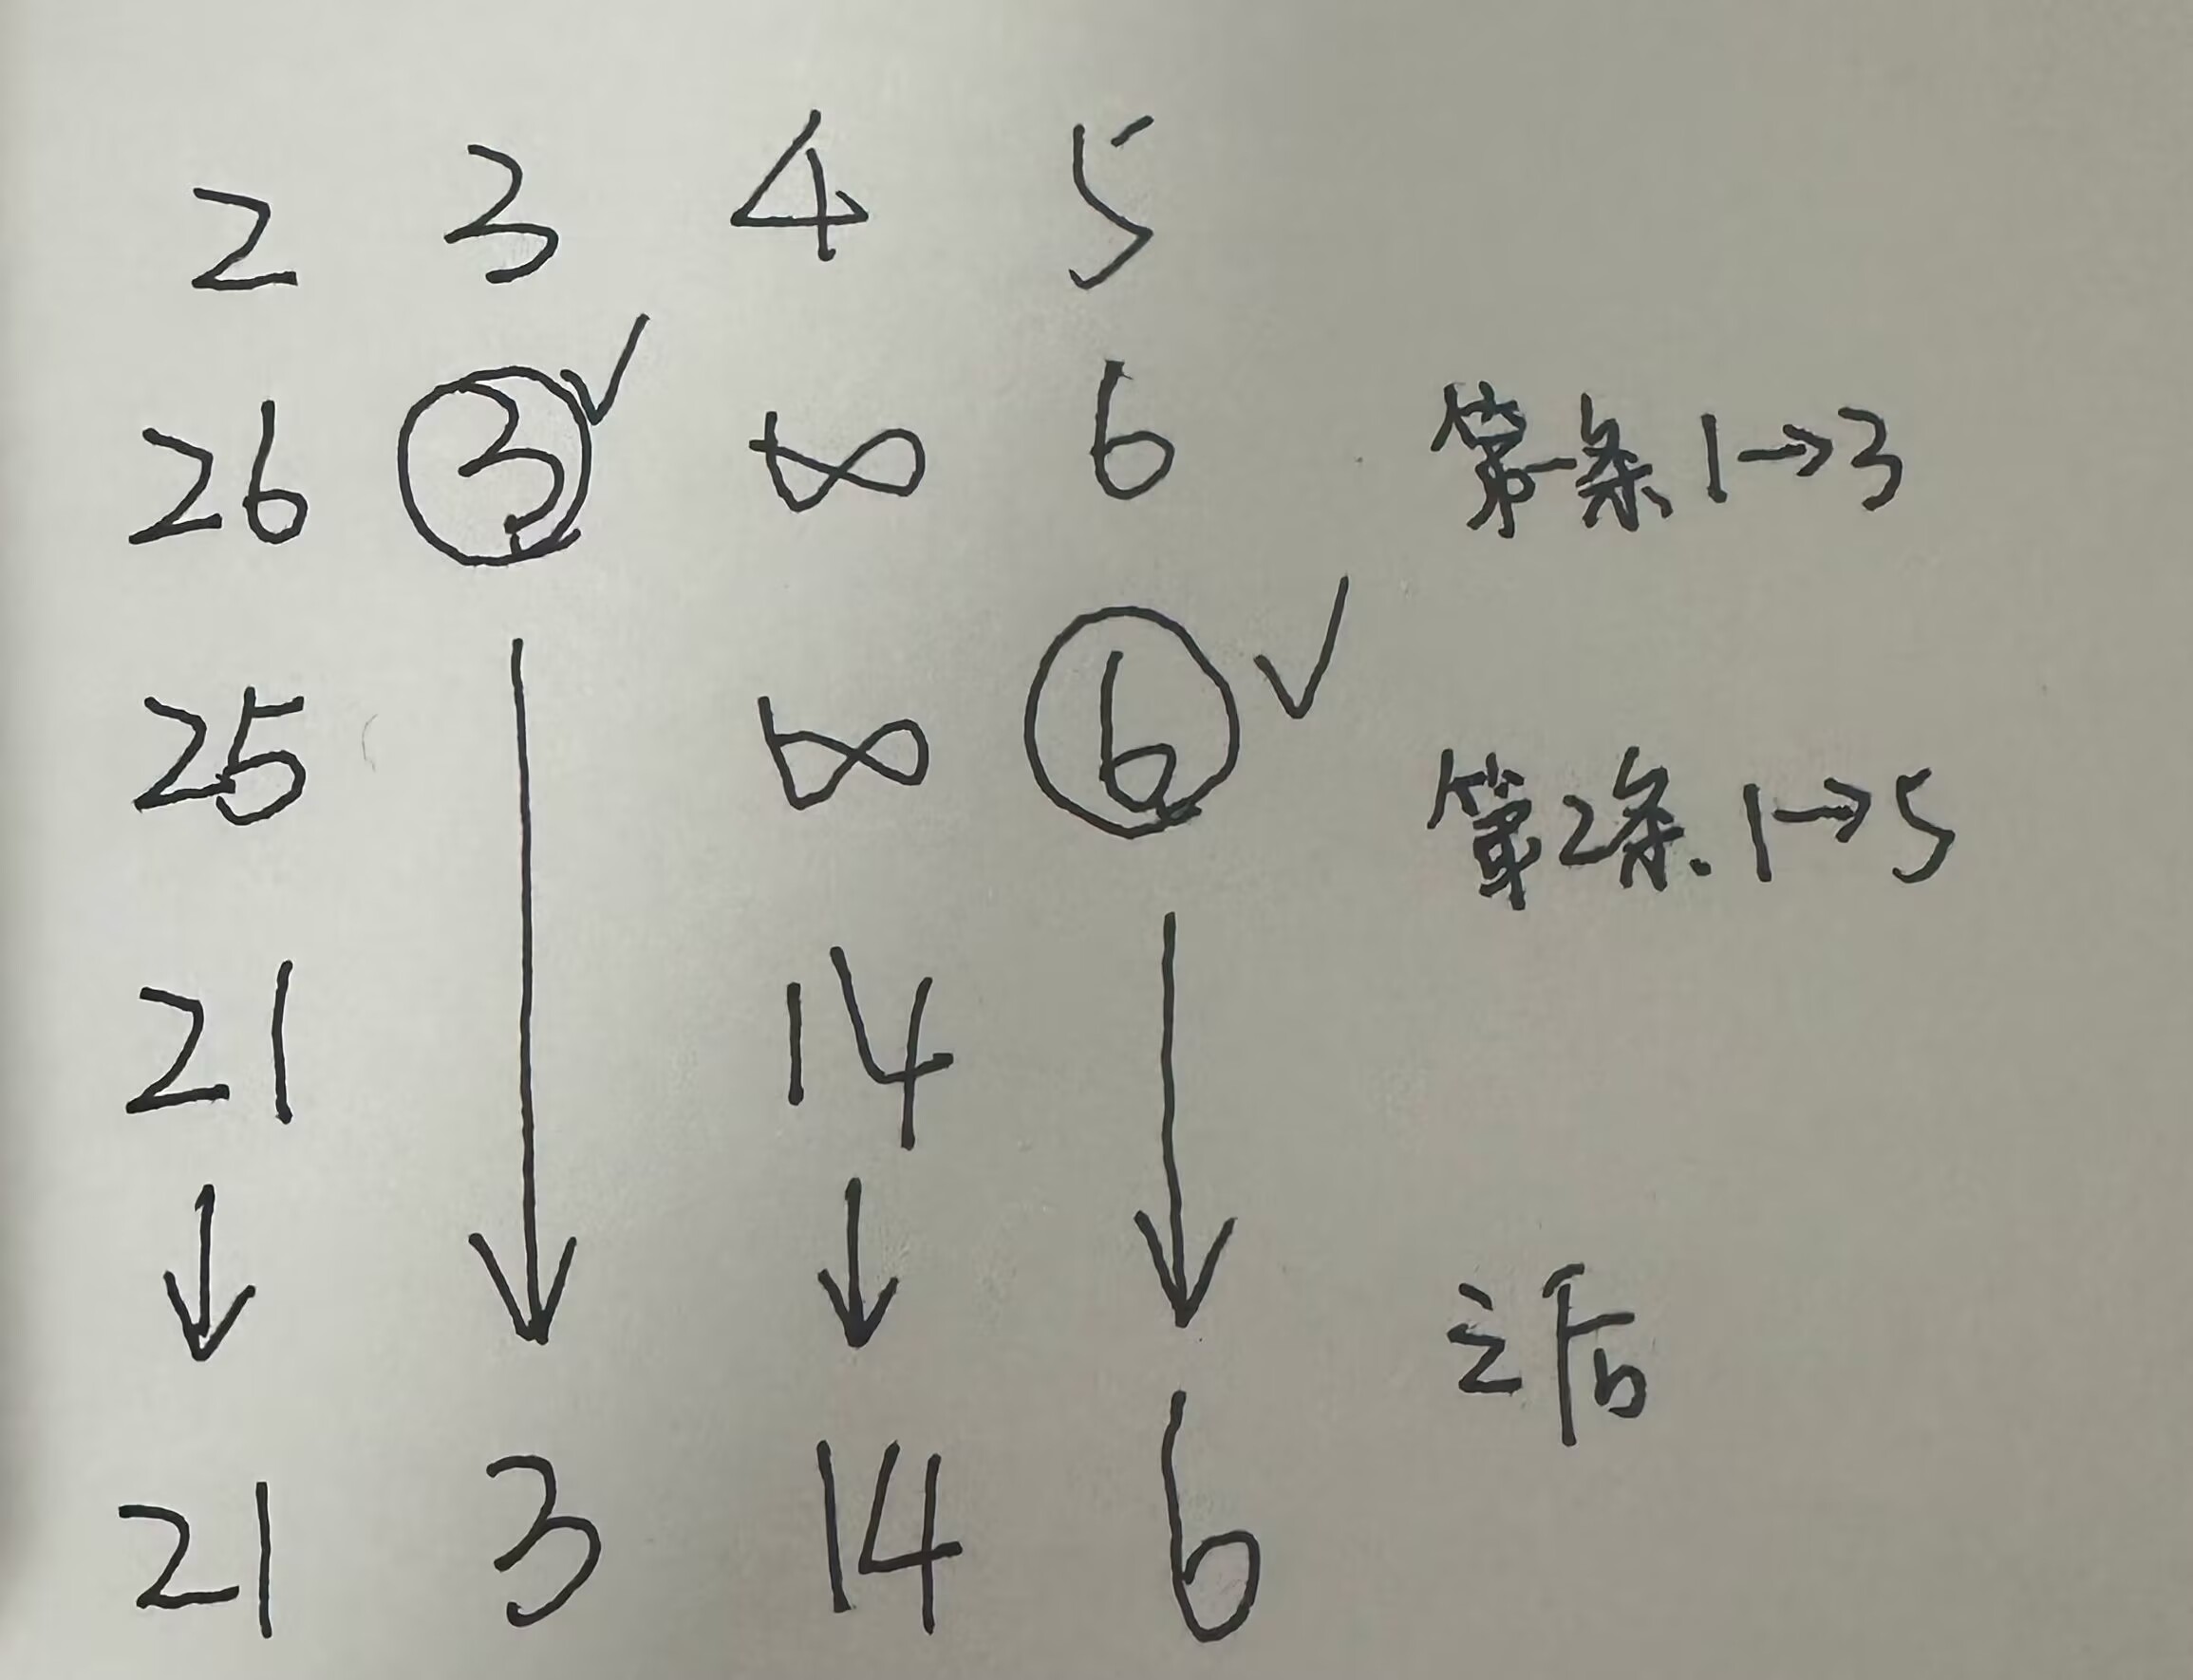 2 3 4 5
26 3 ✓ ∞ 6 第一条 1→3
25 ∞ 6 ✓ 第2条. 1→5
21 14
之后
21 3 14 6